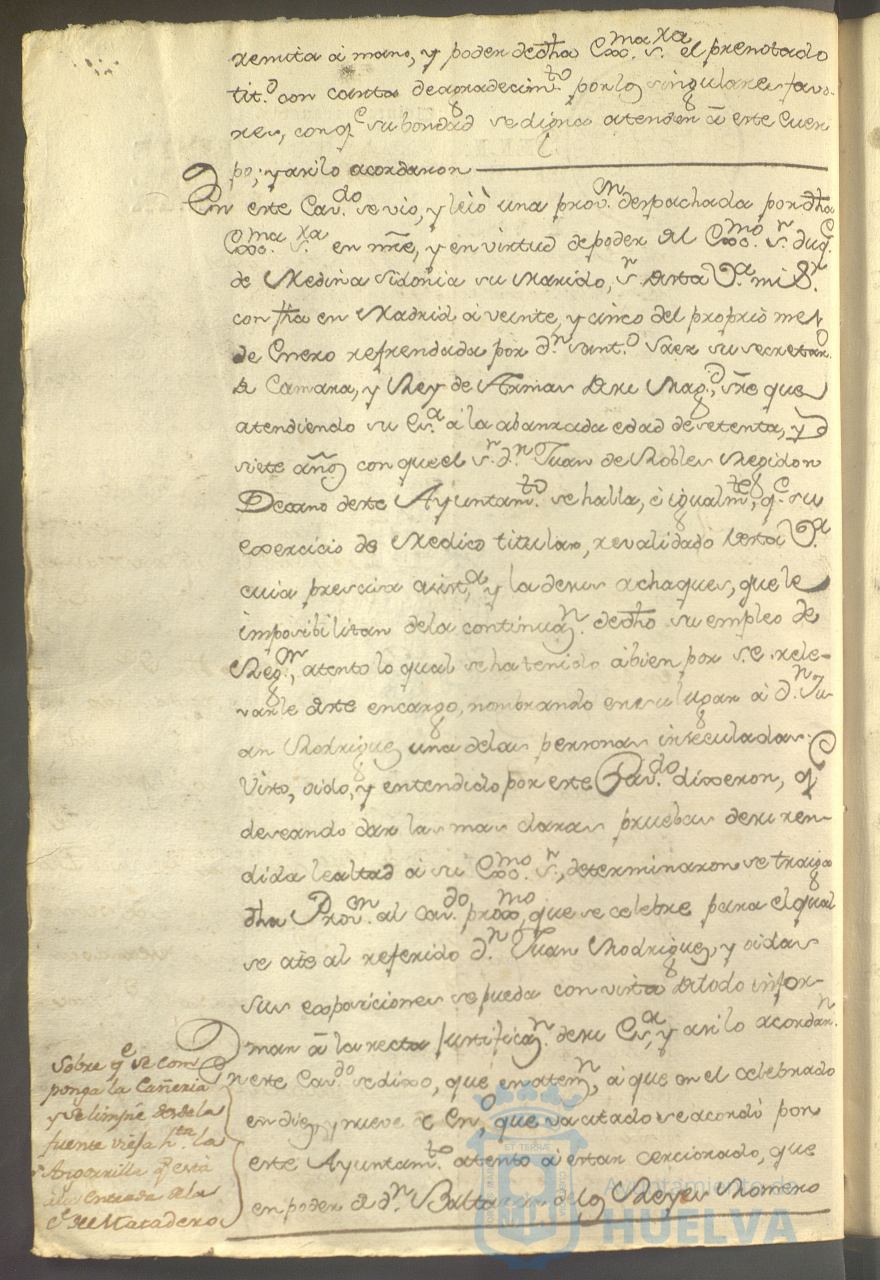 remita à mano, y poder de dha Exma. Sra. el prenotado
tit.o con carta de agradecim.to por los singulares favo-
res, con q.e su bondad se digna atender â este Cuer
po; y asi lo acordaron
En este Cav.do se vio, y leiò una prov.n despachada por dha
Exma. Sra. en nre, y en virtud de poder del Exmo. S.r duq.e
de Medina Sidonia su Marido, S.r desta V.a mi S.r
con fha en Madrid à veinte, y cinco del proprio mes
de Enero refrendada por d.n Sant.o Saez su secretar.o
de Camara, y Rey de Armas de su Mag.d, sre que
atendiendo su Ex.a à la abanzada edad de setenta, y
siete años con que el S.r d.n Juan de Robles Regidor
Decano deste Ayuntam.to se halla, è igualm.te, q.e su
exercicio de Medico titular, revalidado desta V.a
cuia precisa asist.a y la de sus achaques, que le
imposibilitan de la continuaz.n de dho su empleo de
Reg.or, atento lo qual se ha tenido àbien por S.E. rele-
varle deste encargo, nombrando en su lugar à d.n Ju
an Rodriguez una de las personas inseculadas.
Visto, oido, y entendido por este Cav.do dixeron, q.e
deseando dar las mas claras pruebas de su ren-
dida lealtad à su Exmo. S.r, determinaron se traiga
dha Prov.on al Cav.do prox.mo, que se celebre para el qual
se cite al referido d.n Juan Rodriguez, y oidas
sus exposiciones se pueda con vista de todo infor-
mar â la recta justificaz.n de su Ex.a, y asi lo acordar.n
En este Cav.do se dixo, que en aten.n, à que en el celebrado
en diez, y nueve de En.o, que va citado se acordò por
este Ayuntam.to atento à estar cerciorado, que
en poder de d.n Baltasar de los Reyes Romero
Sobre q.e se com
ponga la Cañeria
y se limpie desde la
fuente vieja h.ta la
q.e està
a la entrada de la
C.e del Matadero
ET TERRAE
Ayuntamiento de
HUELVA